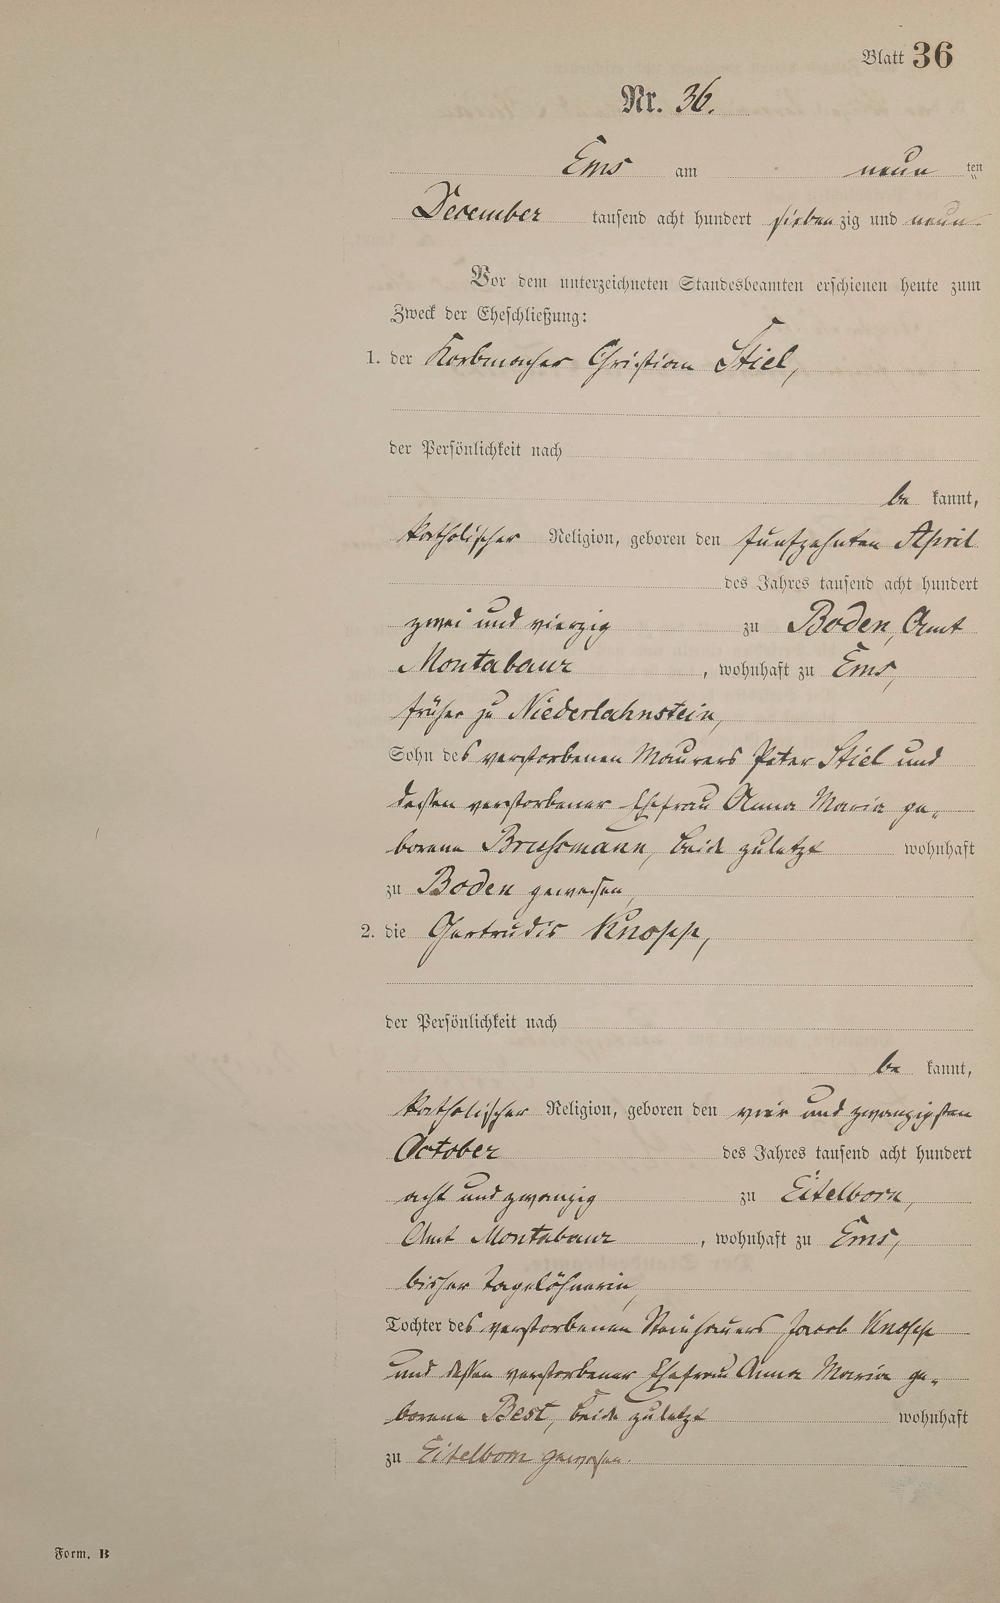 Blatt 36
Nr. 36.
Ems am neun ten
December tausend acht hundert siebenzig und neun
Vor dem unterzeichneten Standesbeamten erschienen heute zum
Zweck der Eheschließung:
1. der Korbmacher Christian Stiel,
der Persönlichkeit nach
be kannt,
katholischer Religion, geboren den fünfzehnten April
des Jahres tausend acht hundert
zwei und vierzig zu Boden, Amt
Montabaur, wohnhaft zu Ems,
früher zu Niederlahnstein,
Sohn des verstorbenen Maurers Peter Stiel und
dessen verstorbener Ehefrau Anna Maria ge-
borene beide zuletzt wohnhaft
zu Boden gewesen,
2. die Gertrudis Knopp,
der Persönlichkeit nach
be kannt,
katholischer Religion, geboren den vier und zwanzigsten
October des Jahres tausend acht hundert
acht und zwanzig zu Eitelborn,
Amt Montabaur, wohnhaft zu Ems,
bisher Tagelöhnerin,
Tochter des verstorbenen Steinhauers Jacob Knopp
und dessen verstorbener Ehefrau Anna Maria ge-
borene Best, beide zuletzt wohnhaft
zu Eitelborn gewesen.
Form. B